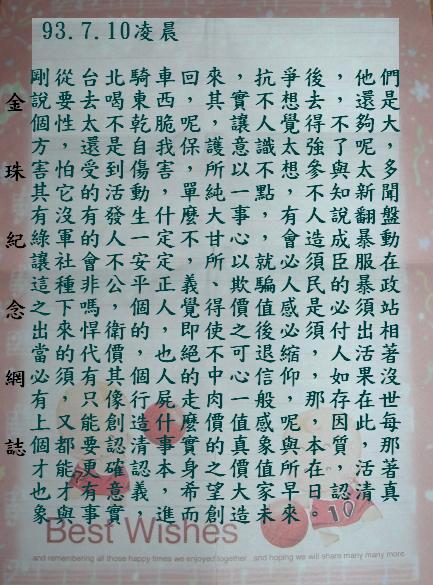 93.7.10凌晨
剛從台北騎車回來，抗爭後，他們
說要去喝東西，其實不想去，還是
個性太不乾脆呢，讓人覺得不夠大
方，還是自我保護意識太強了呢，
害怕受到傷害，所以不想參與太多
其它的活動，單純一點，不知新聞
有沒有發生什麼大事，有人說翻盤
綠軍的人一定不甘心，會造成暴動
讓社會不安定，所以就必須臣服在
這種非公平正義、欺騙人民的暴政
之下嗎，個人覺得價值感是必須站
出來悍衛的，即使之後必須付出相
當的代價，也絕不可退縮，人活著
必須有其個人的中心信仰，如果沒
有，只像行屍走肉一般呢，存在世
上又能創造什麼價值感，那因此每
個都要認清事實的真象與本質，那
才能更確認本身的價值所在，活著
也才有意義，希望大家早日認清真
象與事實，進而創造未來。
金珠紀念網誌
10
Best Wishes
and remembering all those happy times we enjoyed together and hoping we will share many many more